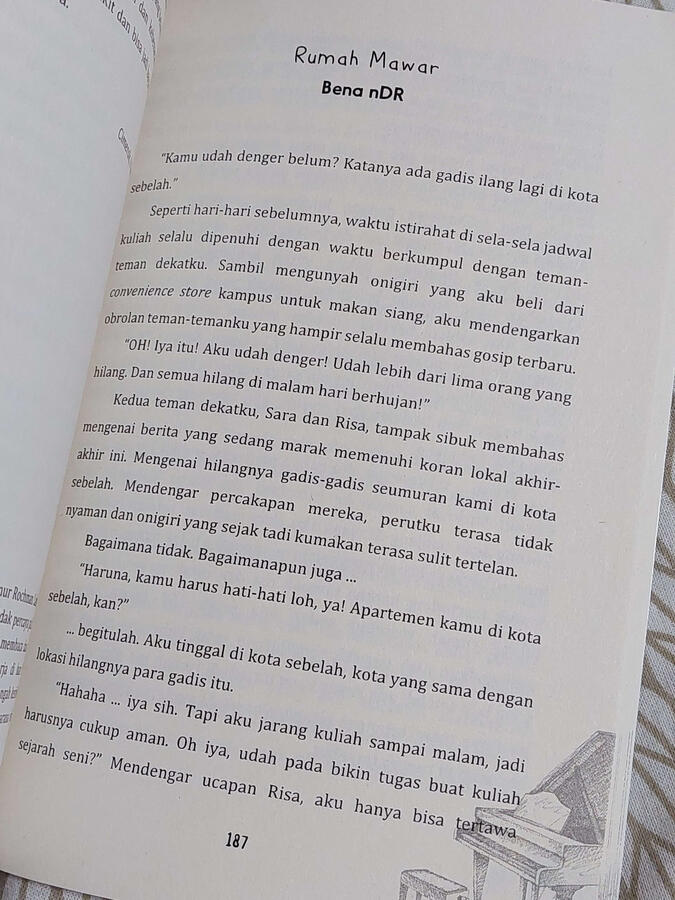 Rumah Mawar
Bena nDR
"Kamu udah denger belum? Katanya ada gadis ilang lagi di kota
sebelah."
Seperti hari-hari sebelumnya, waktu istirahat di sela-sela jadwal
kuliah selalu dipenuhi dengan waktu berkumpul dengan teman-
teman dekatku. Sambil mengunyah onigiri yang aku beli dari
convenience store kampus untuk makan siang, aku mendengarkan
obrolan teman-temanku yang hampir selalu membahas gosip terbaru.
"OH! Iya itu! Aku udah denger! Udah lebih dari lima orang yang
hilang. Dan semua hilang di malam hari berhujan!"
Kedua teman dekatku, Sara dan Risa, tampak sibuk membahas
mengenai berita yang sedang marak memenuhi koran lokal akhir-
akhir ini. Mengenai hilangnya gadis-gadis seumuran kami di kota
sebelah. Mendengar percakapan mereka, perutku terasa tidak
nyaman dan onigiri yang sejak tadi kumakan terasa sulit tertelan.
Bagaimana tidak. Bagaimanapun juga ...
"Haruna, kamu harus hati-hati loh, ya! Apartemen kamu di kota
sebelah, kan?"
... begitulah. Aku tinggal di kota sebelah, kota yang sama dengan
lokasi hilangnya para gadis itu.
"Hahaha ... iya sih. Tapi aku jarang kuliah sampai malam, jadi
harusnya cukup aman. Oh iya, udah pada bikin tugas buat kuliah
sejarah seni?" Mendengar ucapan Risa, aku hanya bisa tertawa
187